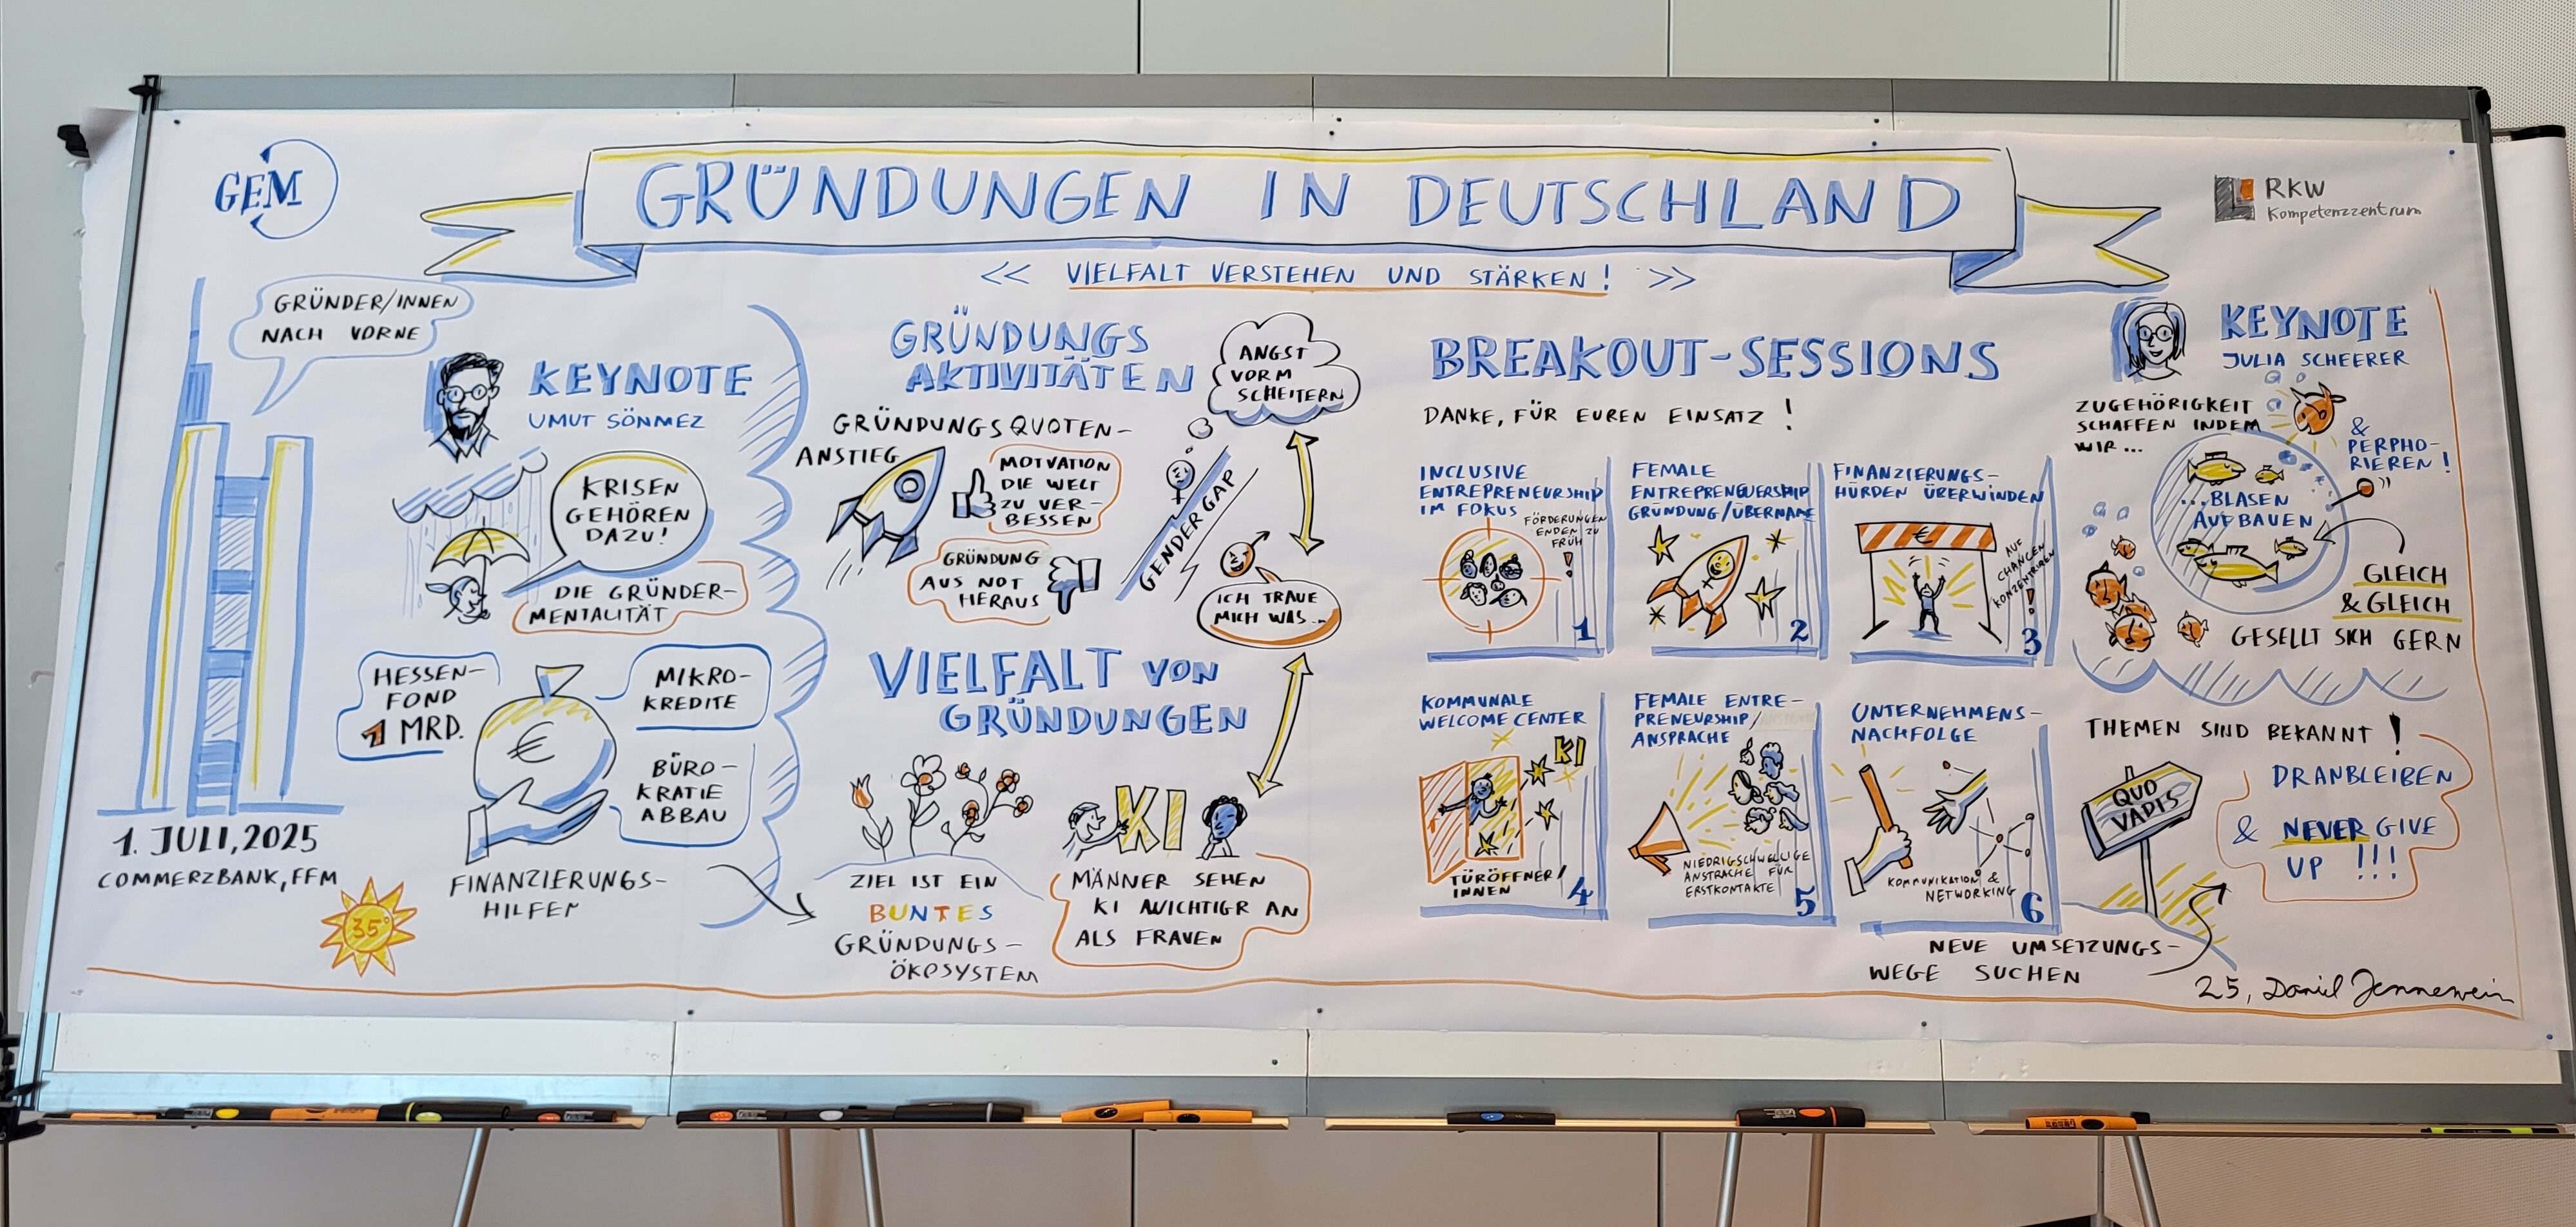 GEM
GRÜNDUNGEN IN DEUTSCHLAND
<< VIELFALT VERSTEHEN UND STÄRKEN! >>
RKW
Kompetenzzentrum
GRÜNDER/INNEN
NACH VORNE
1. JULI, 2025
COMMERZBANK, FFM
35°
KEYNOTE
UMUT SÖNMEZ
KRISEN
GEHÖREN
DAZU!
DIE GRÜNDER-
MENTALITÄT
HESSEN-
FOND
1 MRD.
€
MIKRO-
KREDITE
BÜRO-
KRATIE
ABBAU
FINANZIERUNGS-
HILFEN
GRÜNDUNGS
AKTIVITÄTEN
GRÜNDUNGSQUOTEN-
ANSTIEG
MOTVATION
DIE WELT
ZU VER-
BESSEN
GRÜNDUNG
AUS NOT
HERAUS
GENDER GAP
ANGST
VORM
SCHEITERN
ICH TRAUE
MICH WAS...
VIELFALT VON
GRÜNDUNGEN
ZIEL IST EIN
BUNTES
GRÜNDUNGS-
ÖKOSYSTEM
KI
MÄNNER SEHEN
KI WICHTIGR AN
ALS FRAUEN
BREAKOUT-SESSIONS
DANKE, FÜR EUREN EINSATZ!
INCLUSIVE
ENTREPRENEURSHIP
IM FOKUS
FÖRDERUNGEN
ENDEN ZU
FRÜH
!
1
FEMALE
ENTREPRENEUERSHIP
GRÜNDUNG/ÜBERNAME
2
FINANZIERUNGS-
HÜRDEN ÜBERWINDEN
€
AUF
CHANCEN
KONZENTRIEREN
!
3
KOMMUNALE
WELCOME CENTER
KI
TÜRÖFFNER/
INNEN
4
FEMALE ENTRE-
PRENEURSHIP/
ANSPRACHE
NIEDRIGSCHWELLIGE
ANSTRACHE FÜR
ERSTKONTAKTE
5
UNTERNEHMENS-
NACHFOLGE
KOMMUNIKATION &
NETWORKING
6
KEYNOTE
JULIA SCHEERER
ZUGEHÖRIGKEIT
SCHAFFEN INDEM
WIR...
...BLASEN
AUFBAUEN
&
PERPHO-
RIEREN!
GLEICH
& GLEICH
GESELLT SICH GERN
THEMEN SIND BEKANNT!
DRANBLEIBEN
& NEVER GIVE
UP !!!
QUO
VADIS
NEUE UMSETZUNGS-
WEGE SUCHEN
25, Daniel Jennewein